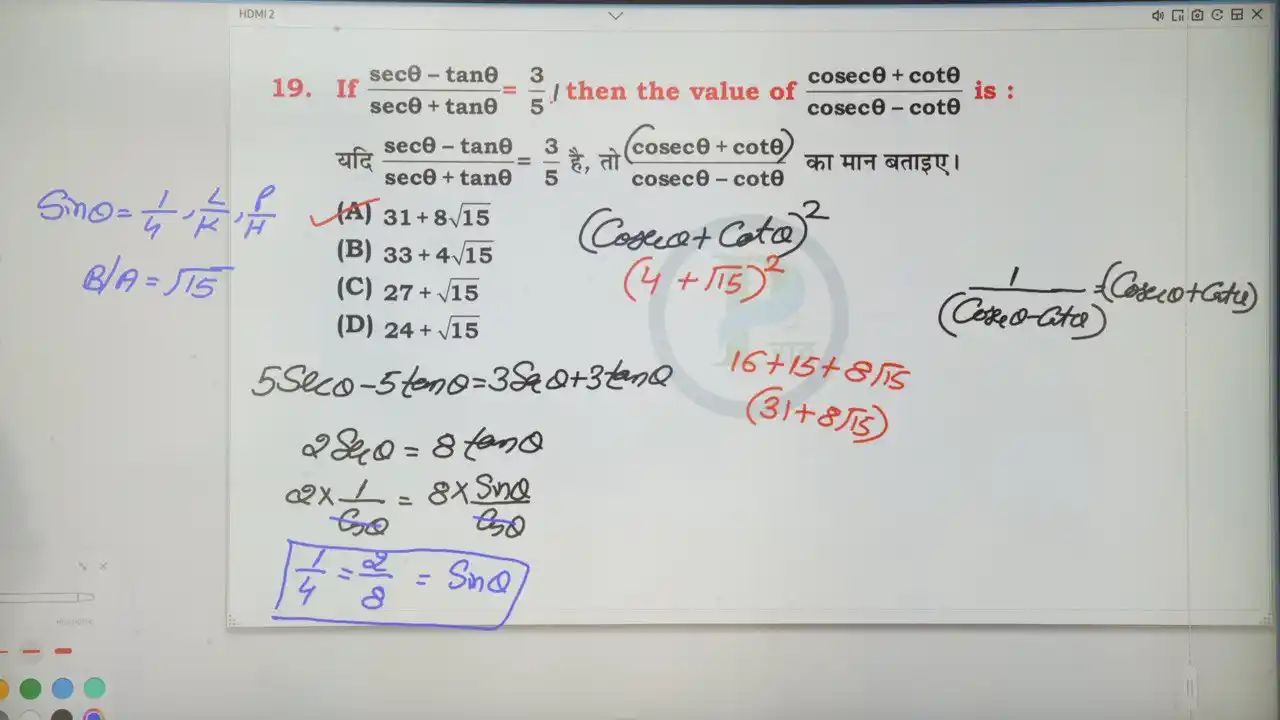 HDMI 2
19. If (secθ – tanθ)/(secθ + tanθ) = 3/5, then the value of (cosecθ + cotθ)/(cosecθ – cotθ) is :
यदि (secθ – tanθ)/(secθ + tanθ) = 3/5 है, तो (cosecθ + cotθ)/(cosecθ – cotθ) का मान बताइए।
(A) 31 + 8√15
(B) 33 + 4√15
(C) 27 + √15
(D) 24 + √15
Sinθ = 1/4, L/K, P/H
B/A = √15
(Cosecθ + Cotθ)²
(4 + √15)²
1/(Cosecθ - Cotθ) = (Cosecθ + Cotθ)
16 + 15 + 8√15
(31 + 8√15)
5Secθ - 5tanθ = 3Secθ + 3tanθ
2Secθ = 8tanθ
2 × 1/Cosθ = 8 × Sinθ/Cosθ
1/4 = 2/8 = Sinθ